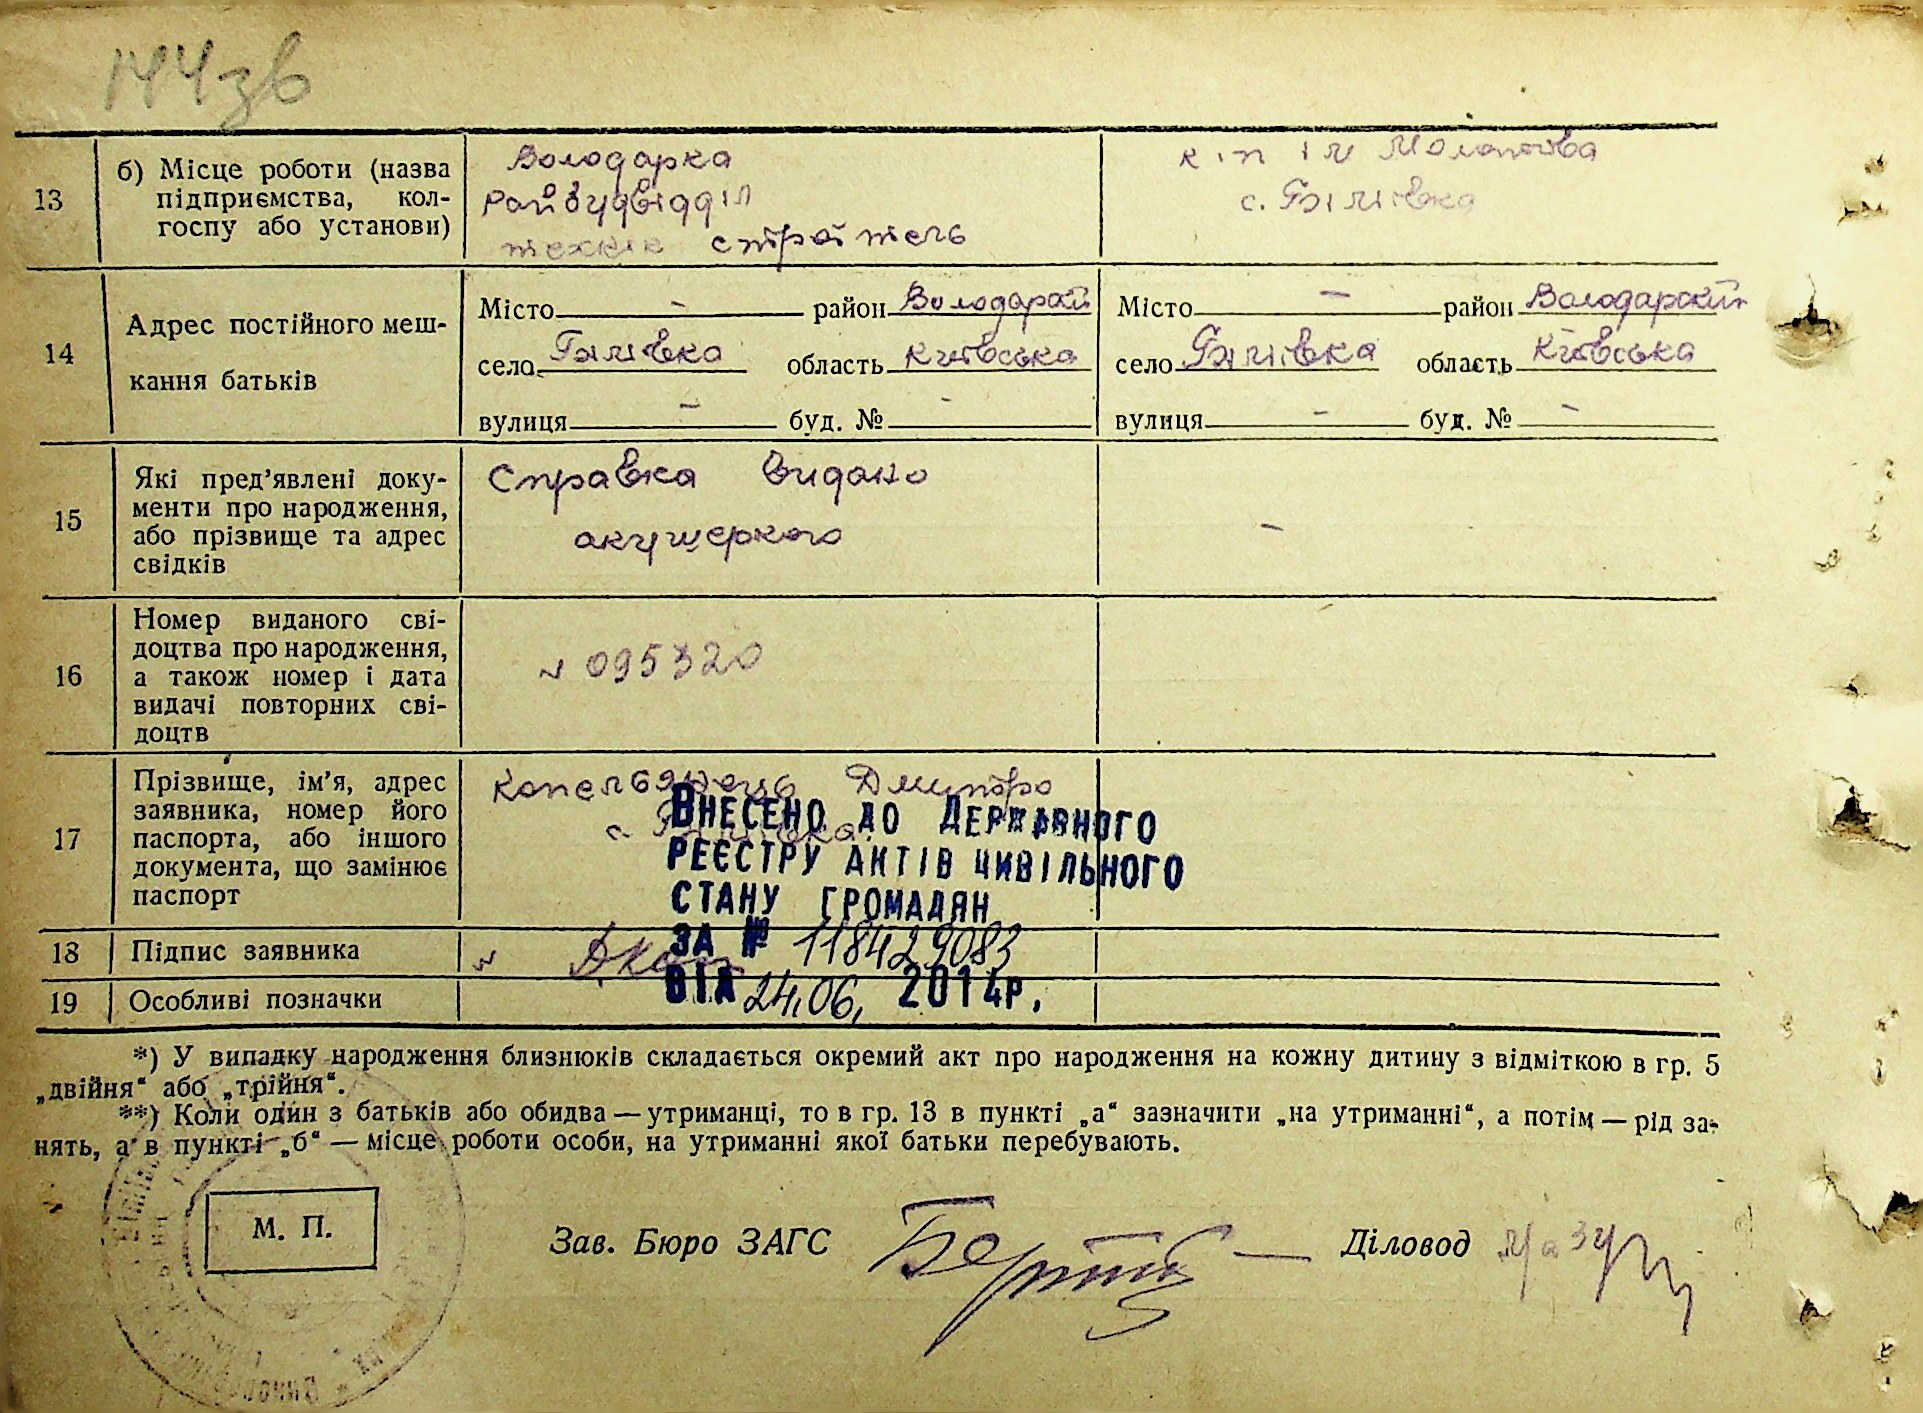 144зв
13
б) Місце роботи (назва
підприємства, кол-
госпу або установи)
Володарка
Райбудвідділ
технік строїтель
к-п ім Молотова
с. Гайлівка
14
Адрес постійного меш-
кання батьків
Місто — район Володарский
село область Київська
вулиця — буд. № -
Місто — район Володарский
село область Київська
вулиця — буд. № -
15
Які пред’явлені доку-
менти про народження,
або прізвище та адрес
свідків
Справка видано
акушеркою
-
16
Номер виданого сві-
доцтва про народження,
а також номер і дата
видачі повторних сві-
доцтв
№ 095320
17
Прізвище, ім’я, адрес
заявника, номер його
паспорта, або іншого
документа, що замінює
паспорт
Дмитро
с.
Внесено до Державного
реєстру актів цивільного
стану громадян
за № 118429083
від 24.06. 2014р.
18
Підпис заявника
19
Особливі позначки
*) У випадку народження близнюків складається окремий акт про народження на кожну дитину з відміткою в гр. 5
„двійня“ або „трійня“.
**) Коли один з батьків або обидва — утриманці, то в гр. 13 в пункті „а“ зазначити „на утриманні“, а потім — рід за-
нять, а в пункті „б“ — місце роботи особи, на утриманні якої батьки перебувають.
М. П.
Зав. Бюро ЗАГС
Діловод